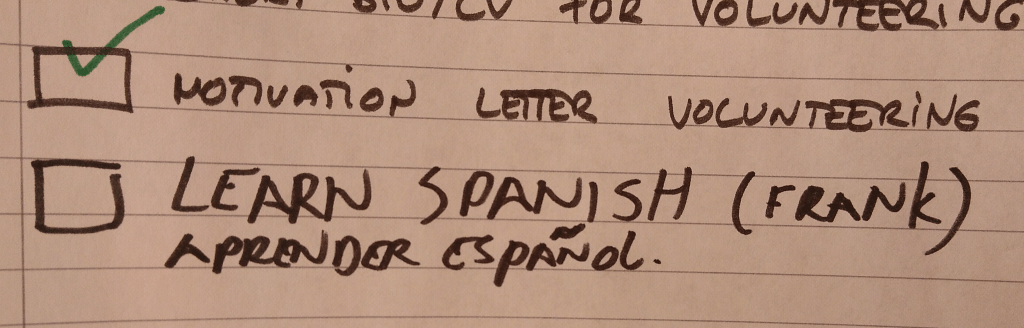 BIO/CV FOR VOLUNTEERING
MOTIVATION LETTER VOLUNTEERING
LEARN SPANISH (FRANK)
APRENDER ESPAÑOL.